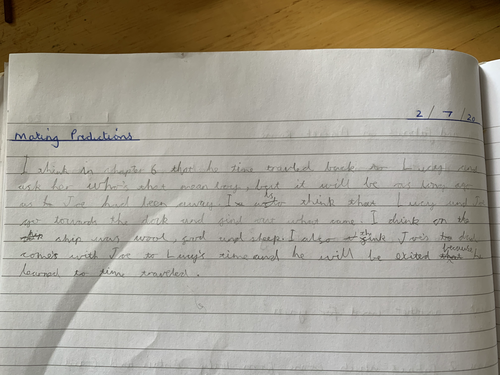 2/7/20
Making Predictions
I think in chapter 6 that he time traveled back to Lucys and
ask her who's that mean boy, but it will be as long ago
as he Joe had been away. I also think that Lucy and Joe
go towards the dock and find out what came. I think on the
ship was wool, god and sleep. I also think Joe's dad
comes with Joe to Lucy's time and he will be exited because he
learned to time traveled.